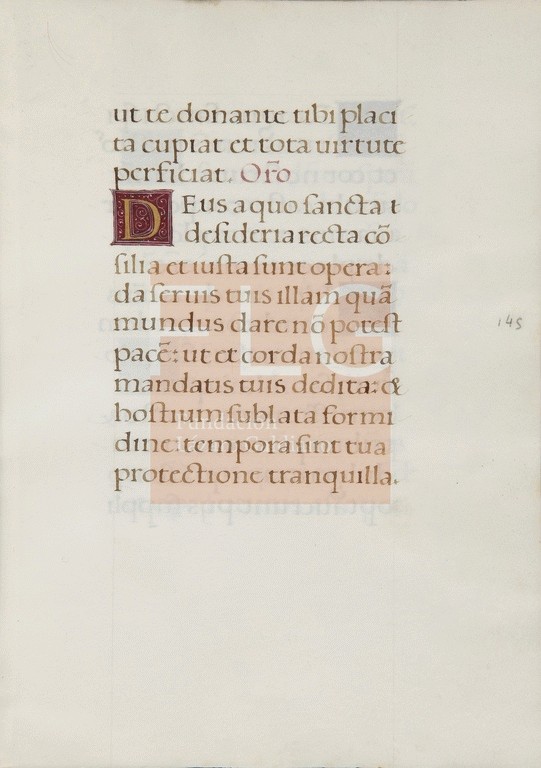 ut te donante tibi placi
ta cupiat et tota uirtute
perficiat. Or̃o
DEus a quo sancta t
desideria recta cõ
silia et iusta sunt opera:
da seruis tuis illam quã
mundus dare nõ potest
pacẽ: ut et corda nostra
mandatis tuis dedita: &
hostium sublata formi
dine tempora sint tua
protectione tranquilla.
145
FLG
Fundación